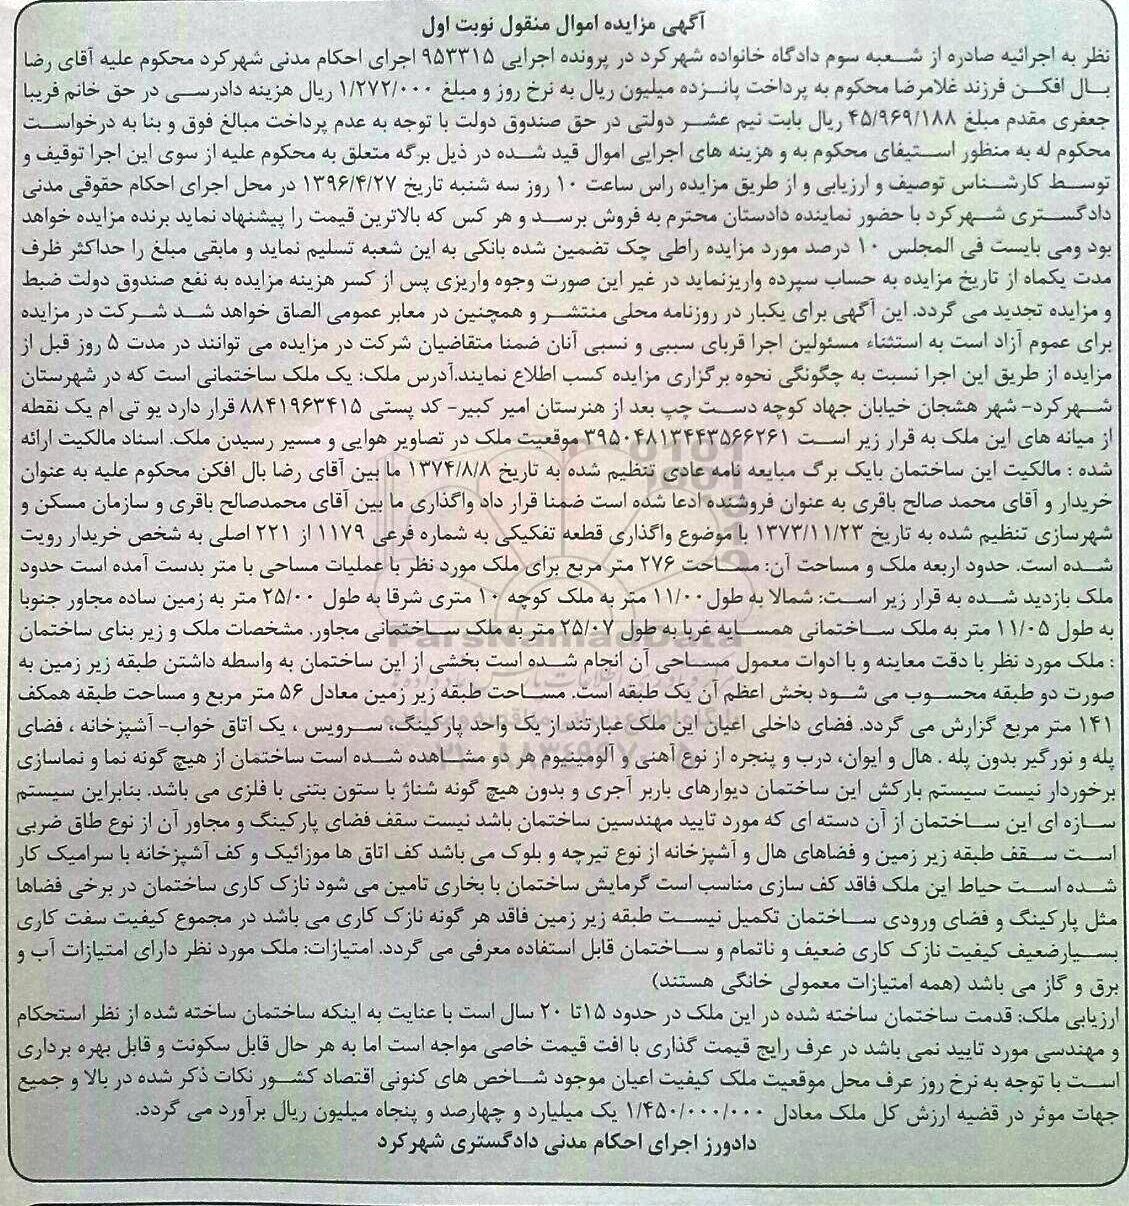 آگهی مزایده اموال منقول نوبت اول
نظر به اجرائیه صادره از شعبه سوم دادگاه خانواده شهرکرد در پرونده اجرایی ۹۵۳۳۱۵ اجرای احکام مدنی شهرکرد محکوم علیه آقای رضا
بال افکن فرزند غلامرضا محکوم به پرداخت پانزده میلیون ریال به نرخ روز و مبلغ ۱/۲۷۲/۰۰۰ ریال هزینه دادرسی در حق خانم فریبا
جعفری مقدم مبلغ ۴۵/۹۶۹/۱۸۸ ریال بابت نیم عشر دولتی در حق صندوق دولت با توجه به عدم پرداخت مبالغ فوق و بنا به درخواست
محکوم له به منظور استیفای محکوم به و هزینه های اجرایی اموال قید شده در ذیل برگه متعلق به محکوم علیه از سوی این اجرا توقیف و
توسط کارشناس توصیف و ارزیابی و از طریق مزایده راس ساعت ۱۰ روز سه شنبه تاریخ ۱۳۹۶/۴/۲۷ در محل اجرای احکام حقوقی مدنی
دادگستری شهرکرد با حضور نماینده دادستان محترم به فروش برسد و هر کس که بالاترین قیمت را پیشنهاد نماید برنده مزایده خواهد
بود ومی بایست فی المجلس ۱۰ درصد مورد مزایده راطی چک تضمین شده بانکی به این شعبه تسلیم نماید و مابقی مبلغ را حداکثر ظرف
مدت یکماه از تاریخ مزایده به حساب سپرده واریزنماید در غیر این صورت وجوه واریزی پس از کسر هزینه مزایده به نفع صندوق دولت ضبط
و مزایده تجدید می گردد. این آگهی برای یکبار در روزنامه محلی منتشر و همچنین در معابر عمومی الصاق خواهد شد شرکت در مزایده
برای عموم آزاد است به استثناء مسئولین اجرا قربای سببی و نسبی آنان ضمنا متقاضیان شرکت در مزایده می توانند در مدت ۵ روز قبل از
مزایده از طریق این اجرا نسبت به چگونگی نحوه برگزاری مزایده کسب اطلاع نمایند.آدرس ملک: یک ملک ساختمانی است که در شهرستان
شهرکرد- شهر هشجان خیابان جهاد کوچه دست چپ بعد از هنرستان امیر کبیر- کد پستی ۸۸۴۱۹۶۳۴۱۵ قرار دارد یو تی ام یک نقطه
از میانه های این ملک به قرار زیر است ۳۹۵۰۴۸۱۳۴۴۳۵۶۶۲۶۱ موقعیت ملک در تصاویر هوایی و مسیر رسیدن ملک. اسناد مالکیت ارائه
شده : مالکیت این ساختمان بایک برگ مبایعه نامه عادی تنظیم شده به تاریخ ۱۳۷۴/۸/۸ ما بین آقای رضا بال افکن محکوم علیه به عنوان
خریدار و آقای محمد صالح باقری به عنوان فروشنده ادعا شده است ضمنا قرار داد واگذاری ما بین آقای محمدصالح باقری و سازمان مسکن و
شهرسازی تنظیم شده به تاریخ ۱۳۷۳/۱۱/۲۳ با موضوع واگذاری قطعه تفکیکی به شماره فرعی ۱۱۷۹ از ۲۲۱ اصلی به شخص خریدار رویت
شده است. حدود اربعه ملک و مساحت آن: مساحت ۲۷۶ متر مربع برای ملک مورد نظر با عملیات مساحی با متر بدست آمده است حدود
ملک بازدید شده به قرار زیر است: شمالا به طول۱۱/۰۰ متر به ملک کوچه ۱۰ متری شرقا به طول ۲۵/۰۰ متر به زمین ساده مجاور جنوبا
به طول ۱۱/۰۵ متر به ملک ساختمانی همسایه غربا به طول ۲۵/۰۷ متر به ملک ساختمانی مجاور. مشخصات ملک و زیر بنای ساختمان
: ملک مورد نظر با دقت معاینه و با ادوات معمول مساحی آن انجام شده است بخشی از این ساختمان به واسطه داشتن طبقه زیر زمین به
صورت دو طبقه محسوب می شود بخش اعظم آن یک طبقه است. مساحت طبقه زیر زمین معادل ۵۶ متر مربع و مساحت طبقه همکف
۱۴۱ متر مربع گزارش می گردد. فضای داخلی اعیان این ملک عبارتند از یک واحد پارکینگ، سرویس ، یک اتاق خواب- آشپزخانه ، فضای
پله و نورگیر بدون پله . هال و ایوان، درب و پنجره از نوع آهنی و آلومینیوم هر دو مشاهده شده است ساختمان از هیچ گونه نما و نماسازی
برخوردار نیست سیستم بارکش این ساختمان دیوارهای باربر آجری و بدون هیچ گونه شناژ با ستون بتنی با فلزی می باشد. بنابراین سیستم
سازه ای این ساختمان از آن دسته ای که مورد تایید مهندسین ساختمان باشد نیست سقف فضای پارکینگ و مجاور آن از نوع طاق ضربی
است سقف طبقه زیر زمین و فضاهای هال و آشپزخانه از نوع تیرچه و بلوک می باشد کف اتاق ها موزائیک و کف آشپزخانه با سرامیک کار
شده است حیاط این ملک فاقد کف سازی مناسب است گرمایش ساختمان با بخاری تامین می شود نازک کاری ساختمان در برخی فضاها
مثل پارکینگ و فضای ورودی ساختمان تکمیل نیست طبقه زیر زمین فاقد هر گونه نازک کاری می باشد در مجموع کیفیت سفت کاری
بسیارضعیف کیفیت نازک کاری ضعیف و ناتمام و ساختمان قابل استفاده معرفی می گردد. امتیازات: ملک مورد نظر دارای امتیازات آب و
برق و گاز می باشد (همه امتیازات معمولی خانگی هستند)
ارزیابی ملک: قدمت ساختمان ساخته شده در این ملک در حدود ۱۵تا ۲۰ سال است با عنایت به اینکه ساختمان ساخته شده از نظر استحکام
و مهندسی مورد تایید نمی باشد در عرف رایج قیمت گذاری با افت قیمت خاصی مواجه است اما به هر حال قابل سکونت و قابل بهره برداری
است با توجه به نرخ روز عرف محل موقعیت ملک کیفیت اعیان موجود شاخص های کنونی اقتصاد کشور نکات ذکر شده در بالا و جمیع
جهات موثر در قضیه ارزش کل ملک معادل ۱/۴۵۰/۰۰۰/۰۰۰ یک میلیارد و چهارصد و پنجاه میلیون ریال برآورد می گردد.
دادورز اجرای احکام مدنی دادگستری شهرکرد
ParsNamadData